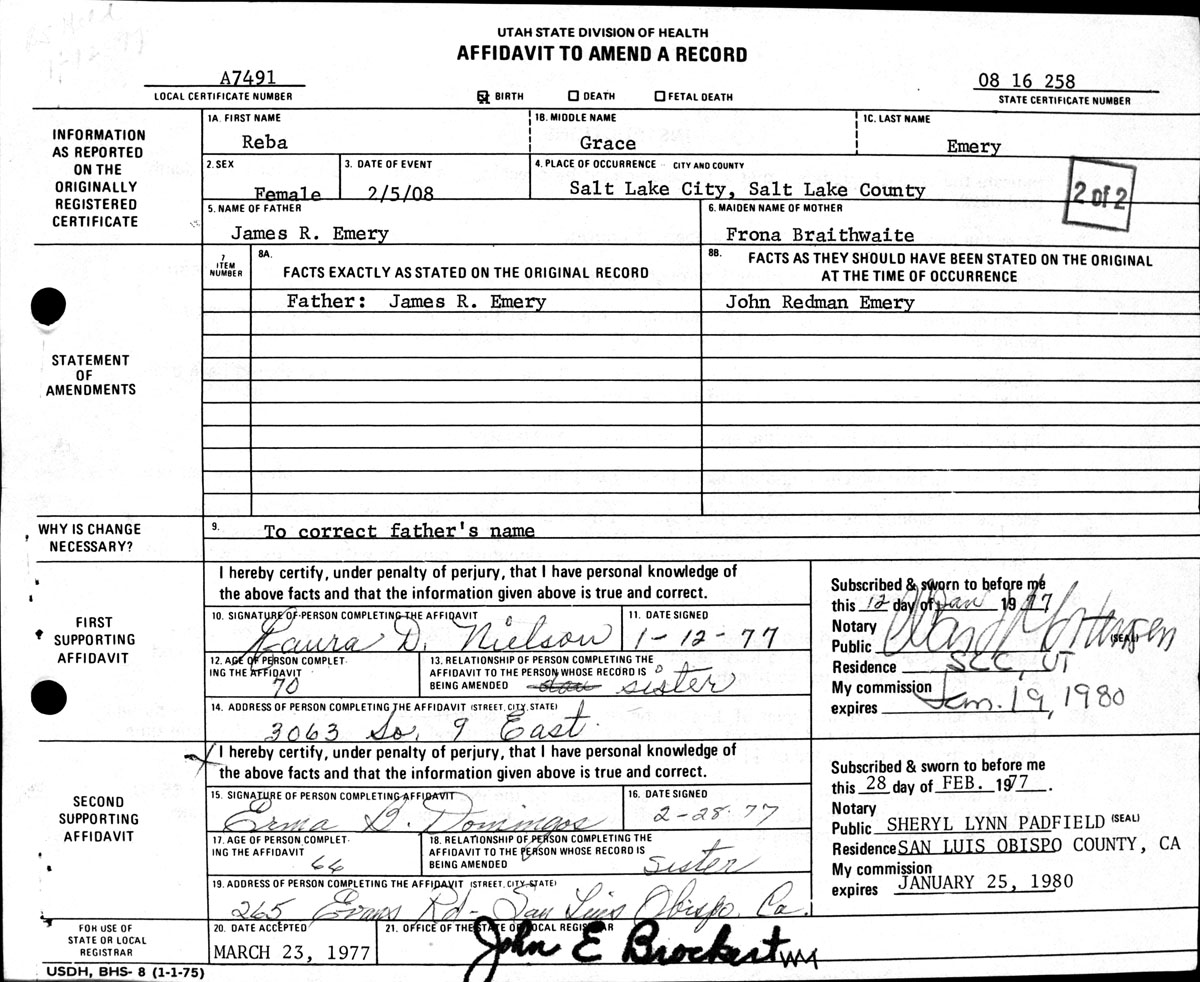 UTAH STATE DIVISION OF HEALTH
AFFIDAVIT TO AMEND A RECORD
A7491
LOCAL CERTIFICATE NUMBER
BIRTH DEATH FETAL DEATH
08 16 258
STATE CERTIFICATE NUMBER
INFORMATION
AS REPORTED
ON THE
ORIGINALLY
REGISTERED
CERTIFICATE
1A. FIRST NAME 1B. MIDDLE NAME 1C. LAST NAME
Reba Grace Emery
2. SEX 3. DATE OF EVENT 4. PLACE OF OCCURRENCE - CITY AND COUNTY
Female 2/5/08 Salt Lake City, Salt Lake County
2 of 2
5. NAME OF FATHER 6. MAIDEN NAME OF MOTHER
James R. Emery Frona Braithwaite
STATEMENT
OF
AMENDMENTS
7
ITEM
NUMBER
8A.
FACTS EXACTLY AS STATED ON THE ORIGINAL RECORD
8B. FACTS AS THEY SHOULD HAVE BEEN STATED ON THE ORIGINAL
AT THE TIME OF OCCURRENCE
Father: James R. Emery John Redman Emery
WHY IS CHANGE
NECESSARY?
9. To correct father's name
FIRST
SUPPORTING
AFFIDAVIT
I hereby certify, under penalty of perjury, that I have personal knowledge of
the above facts and that the information given above is true and correct.
10. SIGNATURE OF PERSON COMPLETING THE AFFIDAVIT 11. DATE SIGNED
Laura D. Nielson 1-12-77
12. AGE OF PERSON COMPLET-
ING THE AFFIDAVIT
70
13. RELATIONSHIP OF PERSON COMPLETING THE
AFFIDAVIT TO THE PERSON WHOSE RECORD IS
BEING AMENDED sister
14. ADDRESS OF PERSON COMPLETING THE AFFIDAVIT (STREET, CITY, STATE)
3063 So. 9 East.
Subscribed & sworn to before me
this 12 day of Jan 1977
Notary
Public (SEAL)
Residence SLC, UT
My commission
expires Jan. 19, 1980
SECOND
SUPPORTING
AFFIDAVIT
I hereby certify, under penalty of perjury, that I have personal knowledge of
the above facts and that the information given above is true and correct.
15. SIGNATURE OF PERSON COMPLETING AFFIDAVIT 16. DATE SIGNED
Erma B. Domingos 2-28-77
17. AGE OF PERSON COMPLET-
ING THE AFFIDAVIT
66
18. RELATIONSHIP OF PERSON COMPLETING THE
AFFIDAVIT TO THE PERSON WHOSE RECORD IS
BEING AMENDED sister
19. ADDRESS OF PERSON COMPLETING THE AFFIDAVIT (STREET, CITY, STATE)
265 Evans Rd - San Luis Obispo, Ca.
Subscribed & sworn to before me
this 28 day of FEB. 1977.
Notary
Public SHERYL LYNN PADFIELD (SEAL)
Residence SAN LUIS OBISPO COUNTY, CA
My commission
expires JANUARY 25, 1980
FOR USE OF
STATE OR LOCAL
REGISTRAR
20. DATE ACCEPTED 21. OFFICE OF THE STATE OR LOCAL REGISTRAR
MARCH 23, 1977 John E Brockert
USDH, BHS- 8 (1-1-75)